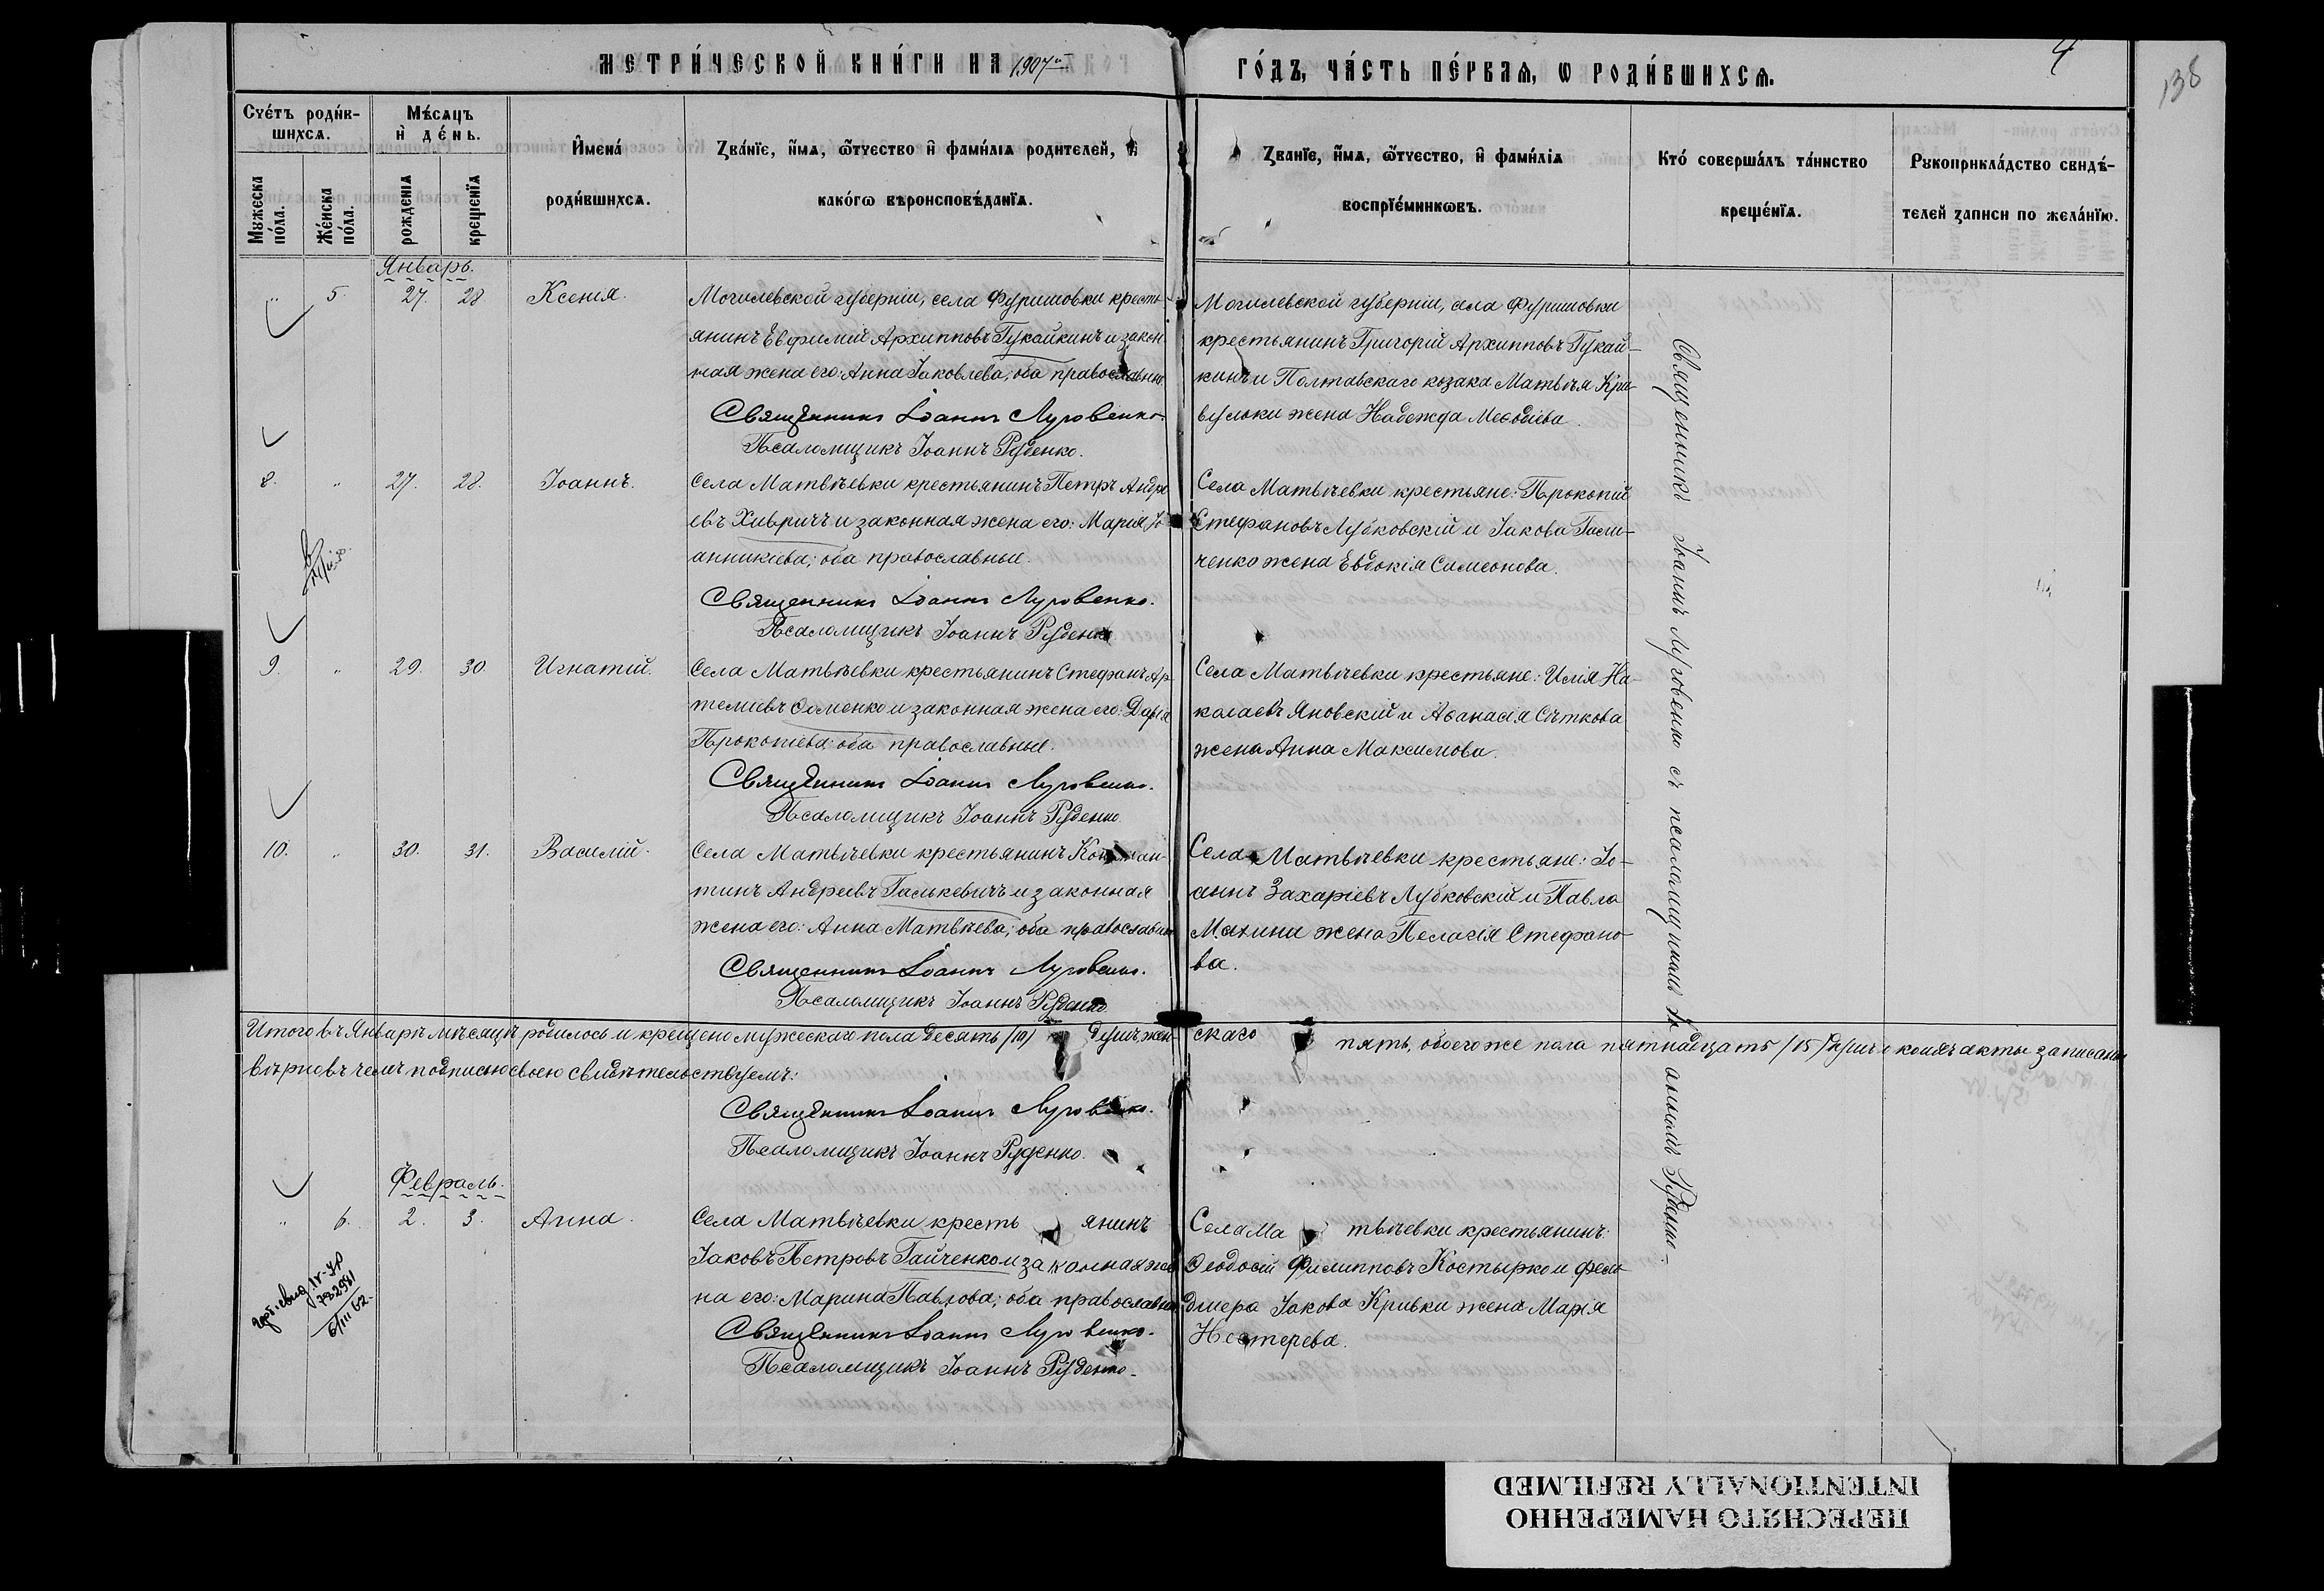 МЕТРИ́ЧЕСКОЙ КНИ́ГИ НА 1907й
ГО́ДЪ, ЧА́СТЬ ПЕ́РВАѦ, Ѡ РОДИ́ВШИХСѦ.
4
138
Счетъ роди́в-
шихсѧ.
Мѣ́сѧцъ
и҆ де́нь.
И҆мена́
роди́вшихсѧ.
Зва́нїе, и҆́мѧ, ѻ҆́тчество и҆ фами́лїѧ родителей, и҆
како́гѡ вѣроисповѣ́данїѧ.
Зва́нїе, и҆́мѧ, ѻ҆́тчество, и҆ фами́лїѧ
воспрїе́мниковъ.
Кто́ соверша́лъ та́инство
креще́нїѧ.
Рꙋкоприкла́дство свидѣ́-
телей записи по жела́нїю.
Мꙋжеска
по́ла.
Же́нска
по́ла.
рожденїѧ
крещенїѧ
Январь.
" 5. 27. 28 Ксенія.
Могилевской губерніи, села Фуришовки кресть-
янинъ Евфимій Архипповъ Гукайкинъ и закон
ная жена его: Анна Іаковлева; оба православные
Священникъ Іоаннъ Луговенко.
Псаломщикъ Іоаннъ Руденко.
Могилевской губерніи, села Фуришовки
крестьянинъ Григорій Архипповъ Гукай-
кинъ и Полтавскаго козака Матвѣя
жена Надежда Меѳодіева.
8. " 27. 28. Іоаннъ.
Села Матвѣевки крестьянинъ Петръ Андре
евъ Хивричъ и законная жена его: Марія Іо
анникіева; оба православные.
Священникъ Іоаннъ Луговенко.
Псаломщикъ Іоаннъ Руденко
Села Матвѣевки крестьяне: Прокопій
Стефановъ Лубковскій и Іакова
ченко жена Евдокія Симеонова.
9. " 29. 30. Игнатій.
Села Матвѣевки крестьянинъ Стефанъ Ар
теміевъ Соменко и законная жена его: Дарія
Прокопіева; оба православные.
Священникъ Іоаннъ Луговенко.
Псаломщикъ Іоаннъ Руденко
Села Матвѣевки крестьяне: Илія Ни
колаевъ Яновскій и Аѳанасія Сѣткова
жена Анна Максимова.
10. " 30. 31. Василій.
Села Матвѣевки крестьянинъ Констан-
тинъ Андреевъ Галькевичъ и законная
жена его: Анна Матвѣева; оба православные
Священникъ Іоаннъ Луговенко.
Псаломщикъ Іоаннъ Руденко
Села Матвѣевки крестьяне: Іо-
аннъ Захаріевъ Лубковскій и Павла
Махини жена Пелагія Стефано-
ва.
Священникъ Іоаннъ Луговенко съ псаломщикомъ Іоанномъ Руденко.
Итого въ Январѣ мѣсяцѣ родилось и крещено мужескаго пола десять /10/ душъ жен- скаго пять, обоего же пола пятнадцать /15/ душъ о коихъ акты записаны
вѣрно въ чемъ подписью своею свидѣтельствуемъ:
Священникъ Іоаннъ Луговенко.
Псаломщикъ Іоаннъ Руденко.
Февраль.
" 6. 2. 3. Анна.
Села Матвѣевки кресть янинъ
Іаковъ Петровъ Гайченко и законная же
на его: Марина Павлова; оба православные
Священникъ Іоаннъ Луговенко.
Псаломщикъ Іоаннъ Руденко.
Села Ма твѣевки крестьянинъ:
Ѳеодосій Филипповъ Костырко и фель-
дшера Іакова Кривки жена Марія
Нестерева.
6/III 62.
ПЕРЕСНЯТО НАМЕРЕННО
INTENTIONALLY REFILMED